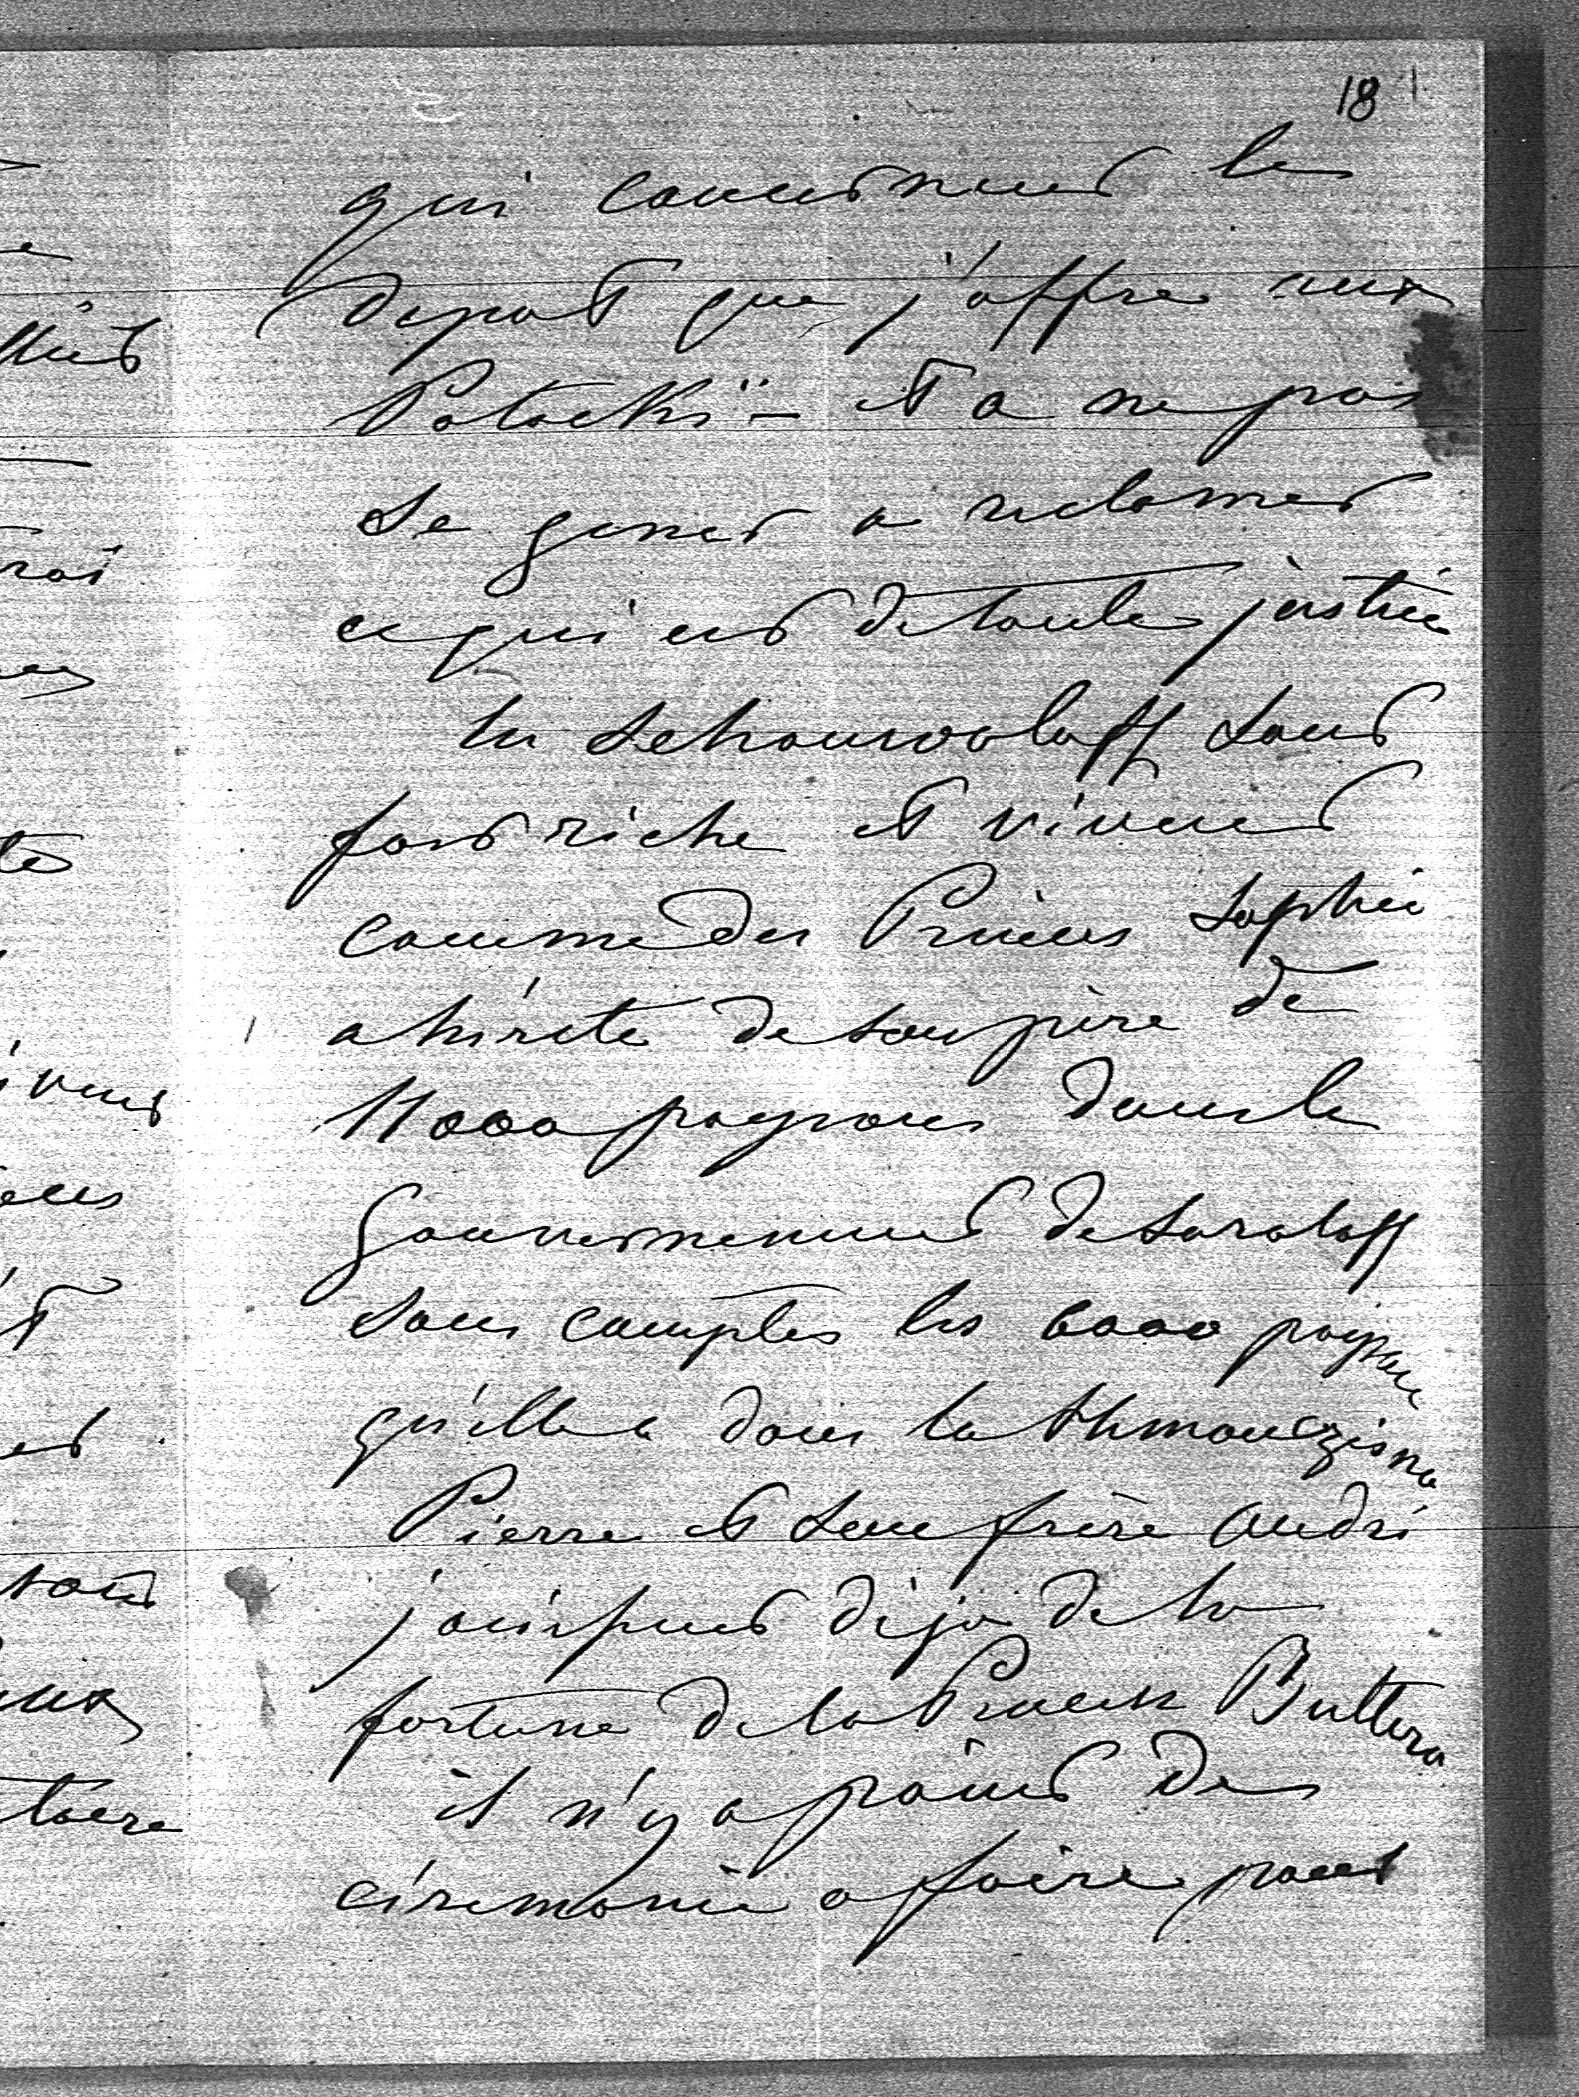 18
qui concernent le
depot que j'offre aux
Potockïi – et a ne pas
se gener a reclamer
ce qui est de toute justice
les Schouwaloff sont
fort riche et vivent
comme des Princes Sophie
a hérité de son père de
11000 paysans dans le
Gouvernement de Saratoff
sans compter les 6000 paysans
qu'elle a dans la
Pierre et son frère André
jouissent déja de la
fortune de la Princesse Buttera
il n'y a point de
cérémonie a faire pour